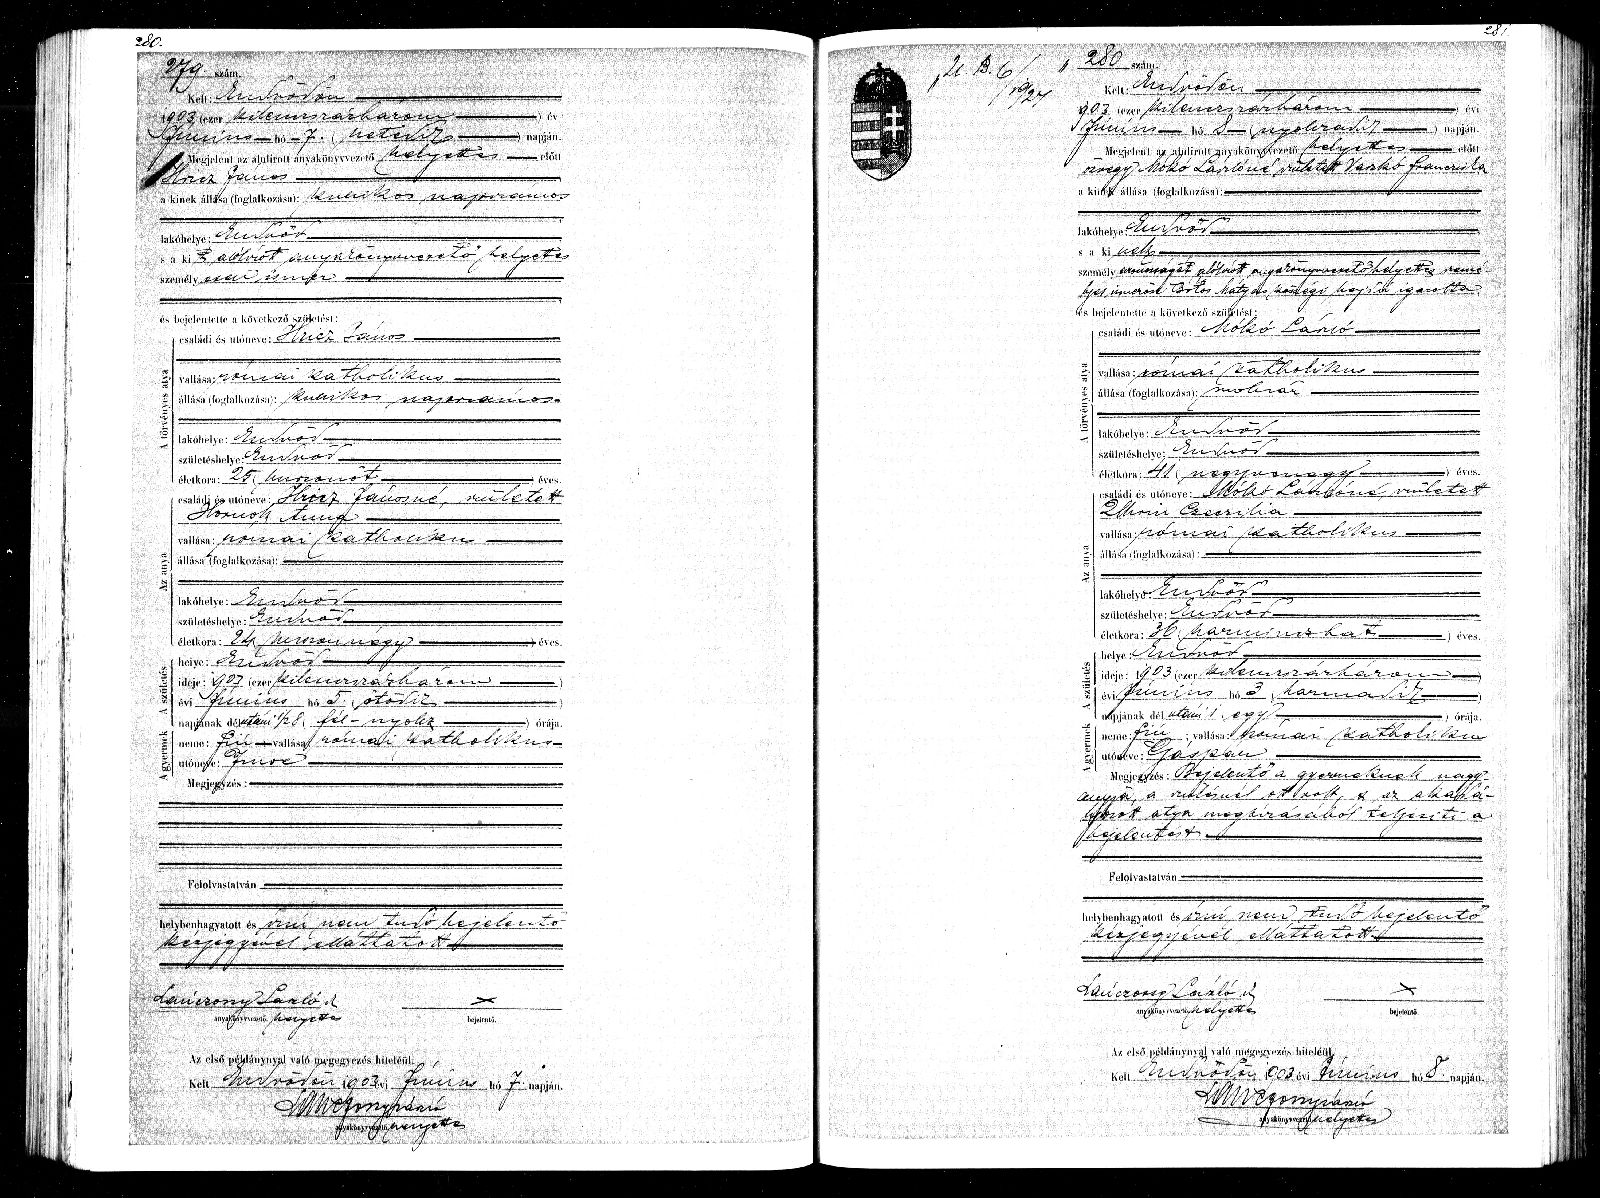 280.
279 szám.
Kelt: Endrődön
1903 (ezer kilencszázhárom) év
Június hó 7. (hetedik) napján.
Megjelent az alulirott anyakönyvvezető helyettes előtt
Hricz János
a kinek állása (foglalkozása): kukás napszámos
lakóhelye: Endrőd
s a kit alólirott anyakönyvvezető helyettes
személyesen ismer
és bejelentette a következő születést:
A törvényes atya
családi és utóneve: Hricz János
vallása: római katholikus
állása (foglalkozása): napszámos
lakóhelye: Endrőd
születéshelye: Endrőd
életkora: 25 (huszonöt) éves.
Az anya
családi és utóneve: Hricz Jánosné, született
Hornok Anna
vallása: római katholikus
állása (foglalkozása):
lakóhelye: Endrőd
születéshelye: Endrőd
életkora: 24 (huszonnégy) éves.
A születés
helye: Endrőd
ideje: 1903 (ezer kilencszázhárom)
évi Június hó 5 (ötödik)
napjának délutáni 1/2 8 (fél-nyolcz) órája.
A gyermek
neme: fiú vallása: római katholikus
utóneve: Imre
Megjegyzés:
Felolvastatván
helybenhagyatott és irni nem tudó bejelentő
kézjegyével elláttatott
Lánczony László
anyakönyvvezető. helyettes
×
bejelentő.
Az első példánynyal való megegyezés hiteléül.
Kelt Endrődön 1903 évi Június hó 7. napján.
Lánczony László
anyakönyvvezető helyettes
281
U. B. 6/1927
280 szám.
Kelt: Endrődön
1903 (ezer kilencszázhárom) évi
Június hó 8 (nyolczadik) napján.
Megjelent az alulirott anyakönyvvezető helyettes előtt
özvegy Mókó Lászlóné született Vaskó Francziska
a kinek állása (foglalkozása):
lakóhelye: Endrőd
s a kinek
személyazonosságát alólirott anyakönyvvezető helyettes szemé-
lyes ismerőse Mátyás községi bajza igazolta
és bejelentette a következő születést:
A törvényes atya
családi és utóneve: Mókó László
vallása: római katholikus
állása (foglalkozása): molnár
lakóhelye: Endrőd
születéshelye: Endrőd
életkora: 41 (negyvenegy) éves.
Az anya
családi és utóneve: Mókó Lászlóné, született
Czeczilia
vallása: római katholikus
állása (foglalkozása):
lakóhelye: Endrőd
születéshelye: Endrőd
életkora: 36 (harminczhat) éves.
A születés
helye: Endrőd
ideje: 1903 (ezer kilencszázhárom)
évi Június hó 3 (harmadik)
napjának délutáni 1 (egy) órája.
A gyermek
neme: fiú; vallása: római katholikus
utóneve: Gáspár
Megjegyzés: Bejelentő a gyermeknek nagy-
anyja, a szülésnél ott volt, s az akadá-
lyozott atya megbizásából teljesiti a
bejelentést
Felolvastatván
helybenhagyatott és irni nem tudó bejelentő
kézjegyével elláttatott
Lánczony László
anyakönyvvezető helyettes
×
bejelentő
Az első példánynyal való megegyezés hiteléül.
Kelt Endrődön 1903 évi Június hó 8. napján.
Lánczony László
anyakönyvvezető helyettes